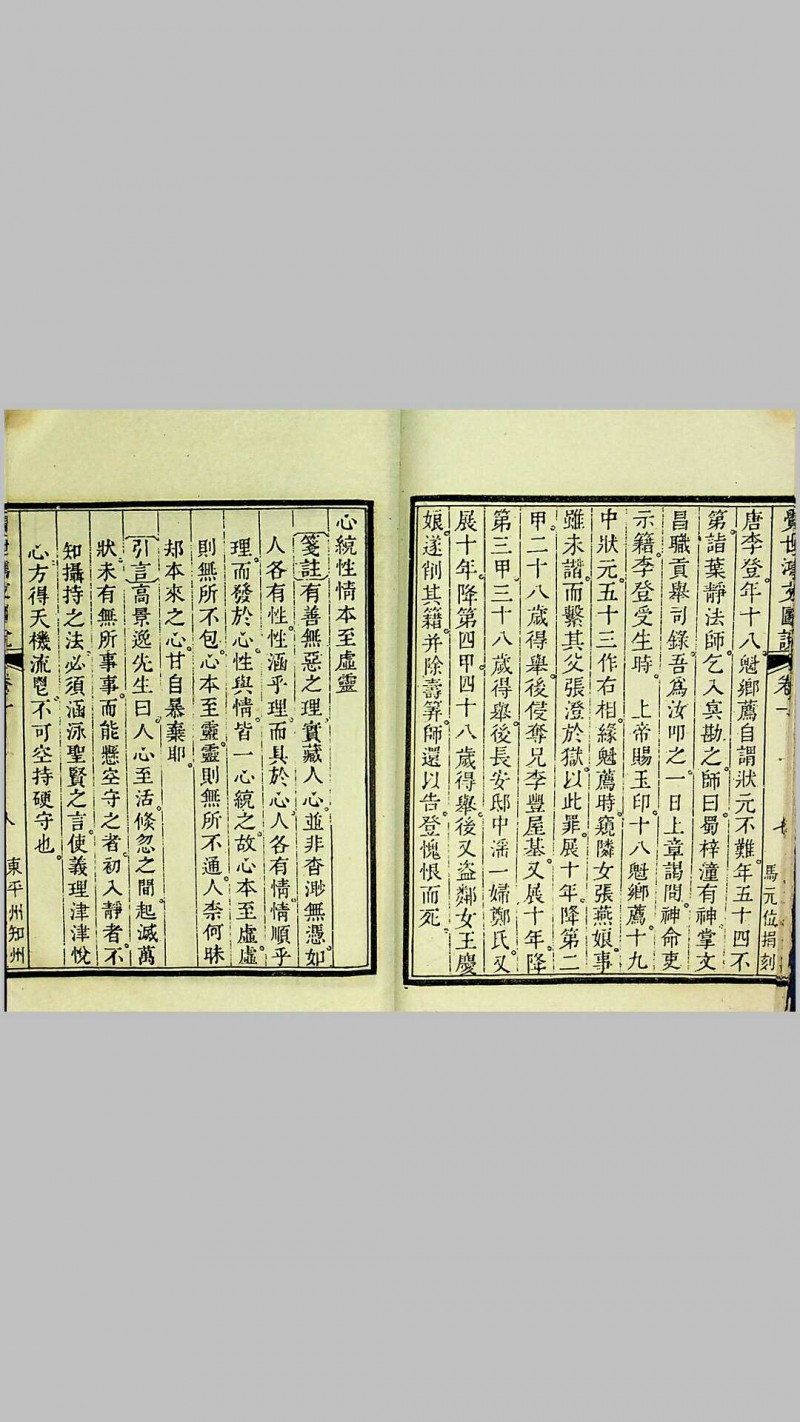 覺世鴻文圖說 卷一 七 馬元位捐刻
唐李登年十八魁鄉薦自謂狀元不難年五十四不
第詣葉靜法師乞入冥勘之師曰蜀梓潼有神掌文
昌職貢舉司錄吾爲汝叩之一日上章謁問神命吏
示籍李登受生時　上帝賜玉印十八魁鄉薦十九
中狀元五十三作右相緣魁薦時窺隣女張燕娘事
雖未諧而繫其父張澄於獄以此罪展十年降第二
甲二十八歲得舉後侵奪兄李豐屋基又展十年降
第三甲三十八歲得舉後長安邸中滛一婦鄭氏又
展十年降第四甲四十八歲得舉後又盜鄰女王慶
娘遂削其籍并除壽筭師還以告登愧恨而死
心統性情本至虛靈
箋註有善無惡之理實藏人心並非杳渺無憑如
人各有性性涵乎理而具於心人各有情情順乎
理而發於心性與情皆一心統之故心本至虛虛
則無所不包心本至靈靈則無所不通人奈何昧
却本來之心甘自暴棄耶
引言高景逸先生曰人心至活倏忽之間起滅萬
狀未有無所事事而能懸空守之者初入靜者不
知攝持之法必須涵泳聖賢之言使義理津津悅
心方得天機流鬯不可空持硬守也
卷一 八 東平州知州